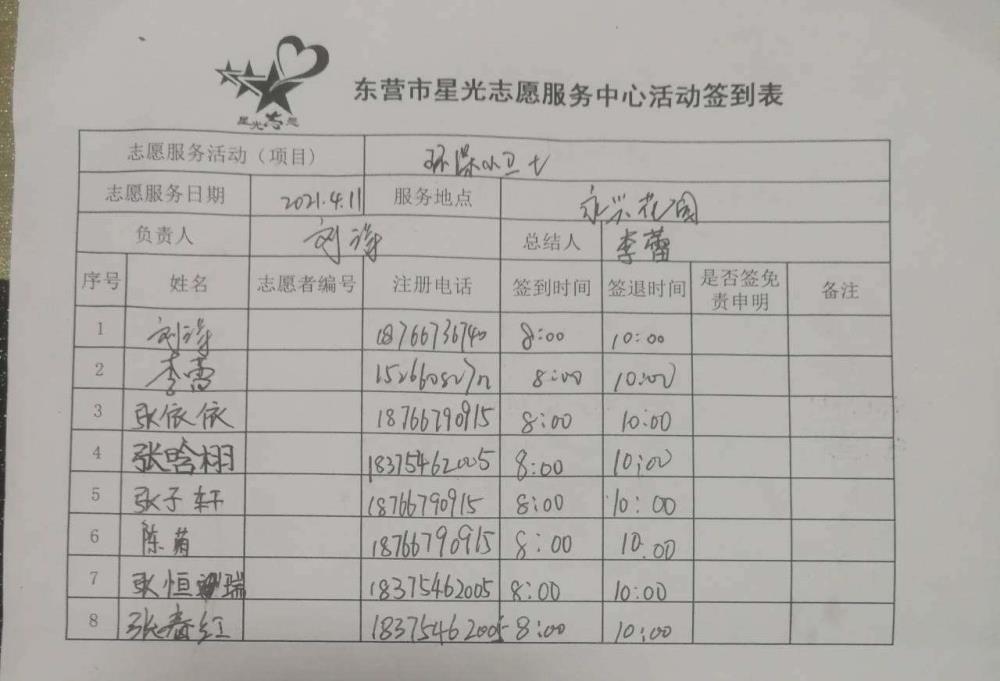 星光志愿
东营市星光志愿服务中心活动签到表
志愿服务活动（项目） 环保小卫士
志愿服务日期 2021.4.11 服务地点 永兴花园
负责人 刘 总结人 李蕾
序号 姓名 志愿者编号 注册电话 签到时间 签退时间 是否签免责申明 备注
1 刘 18766736740 8:00 10:00
2 李蕾 8:00 10:00
3 张依依 18766790915 8:00 10:00
4 张晗栩 18375462005 8:00 10:00
5 张子轩 18766790915 8:00 10:00
6 陈菊 18766790915 8:00 10:00
7 张恒瑞 18375462005 8:00 10:00
8 张春红 18375462005 8:00 10:00